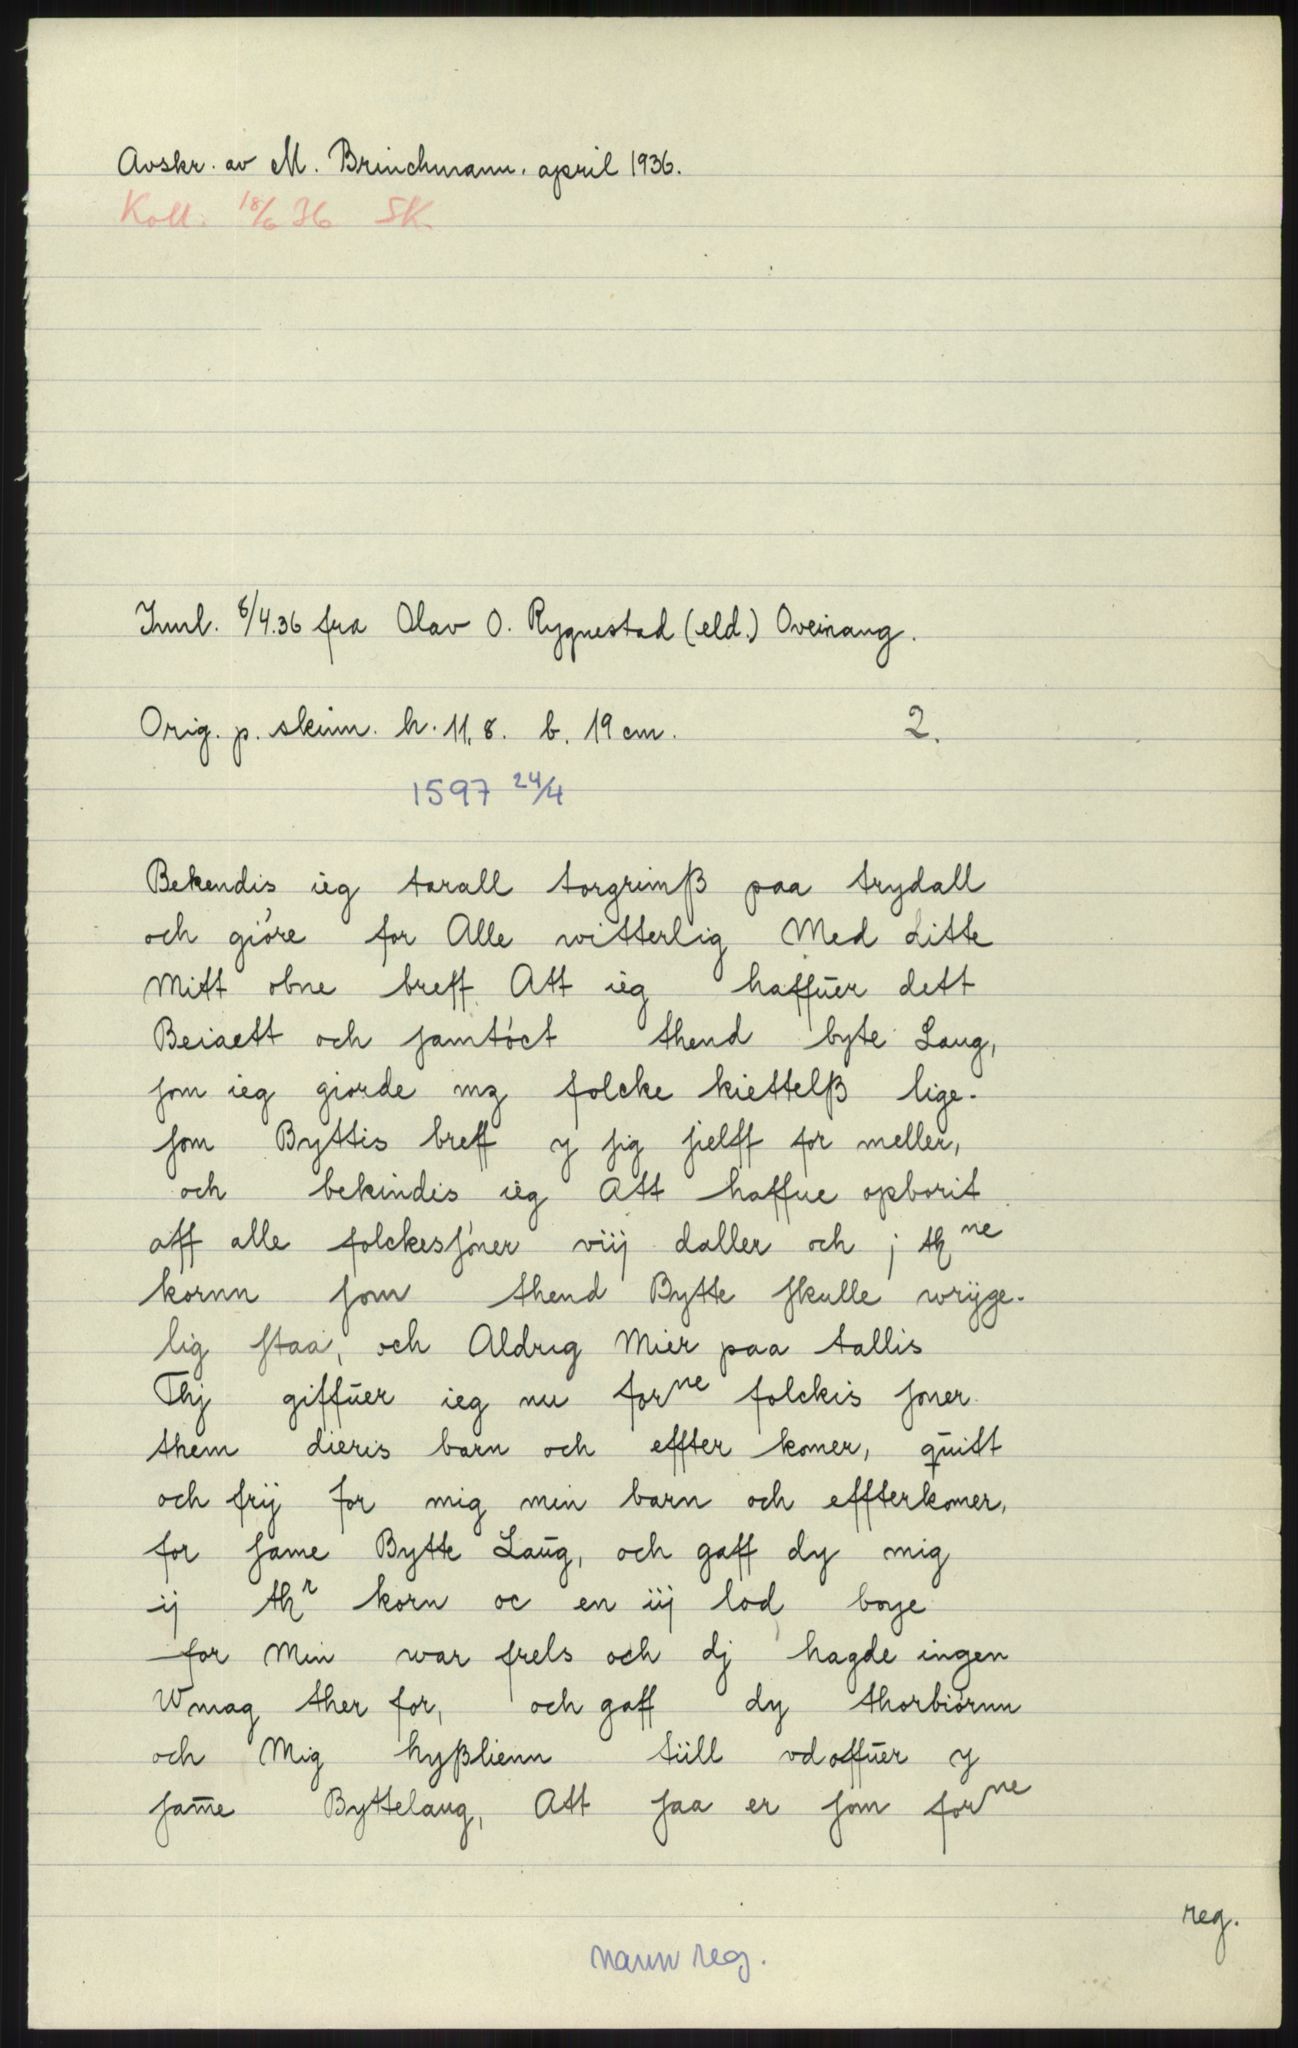 Avskr. av M. Brinchmann. april 1936.
Koll. 18/6 36 SK.
Innl. 8/4.36 fra Olav O. Rygnestad (eld.) Oveinang.
Orig. p. skinn. h. 11,8. b. 19 cm. 2.
1597 24/4
Bekendis ieg tarall torgrimß paa trydall
och giöre for Alle witterlig Med Litte
Mitt obne breff. Att ieg haffūer dett
Beiaett och ſamtöct thend byte Laug,
ſom ieg giorde mz folcke kiettelß lige-
ſom Byttis breff y ſig ſielff for meller,
och bekindis ieg Att haffue opborit
aff alle folckesſöner viij daller och j tħ ne
kornn ſom thend Bytte ſkulle wrÿge-
lig ſtaa, och Aldrig Mier paa tallis
Thj giffūer ieg nu for ne folckis ſoner
them dieris barn och effter komer, qūitt
och frij for mig min barn och effterkomer,
for ſame Bytte Laūg, och gaff dy mig
ij tħ r korn oc en iij lod boye
for Min war frels och dj hagde ingen
Wmag ther for, och gaff dy thorbiörnn
och Mig hyßlienn tiill vdoffūer y
ſam̄e Byttelaug, Att ſaa er ſom for ne
reg.
navnreg.